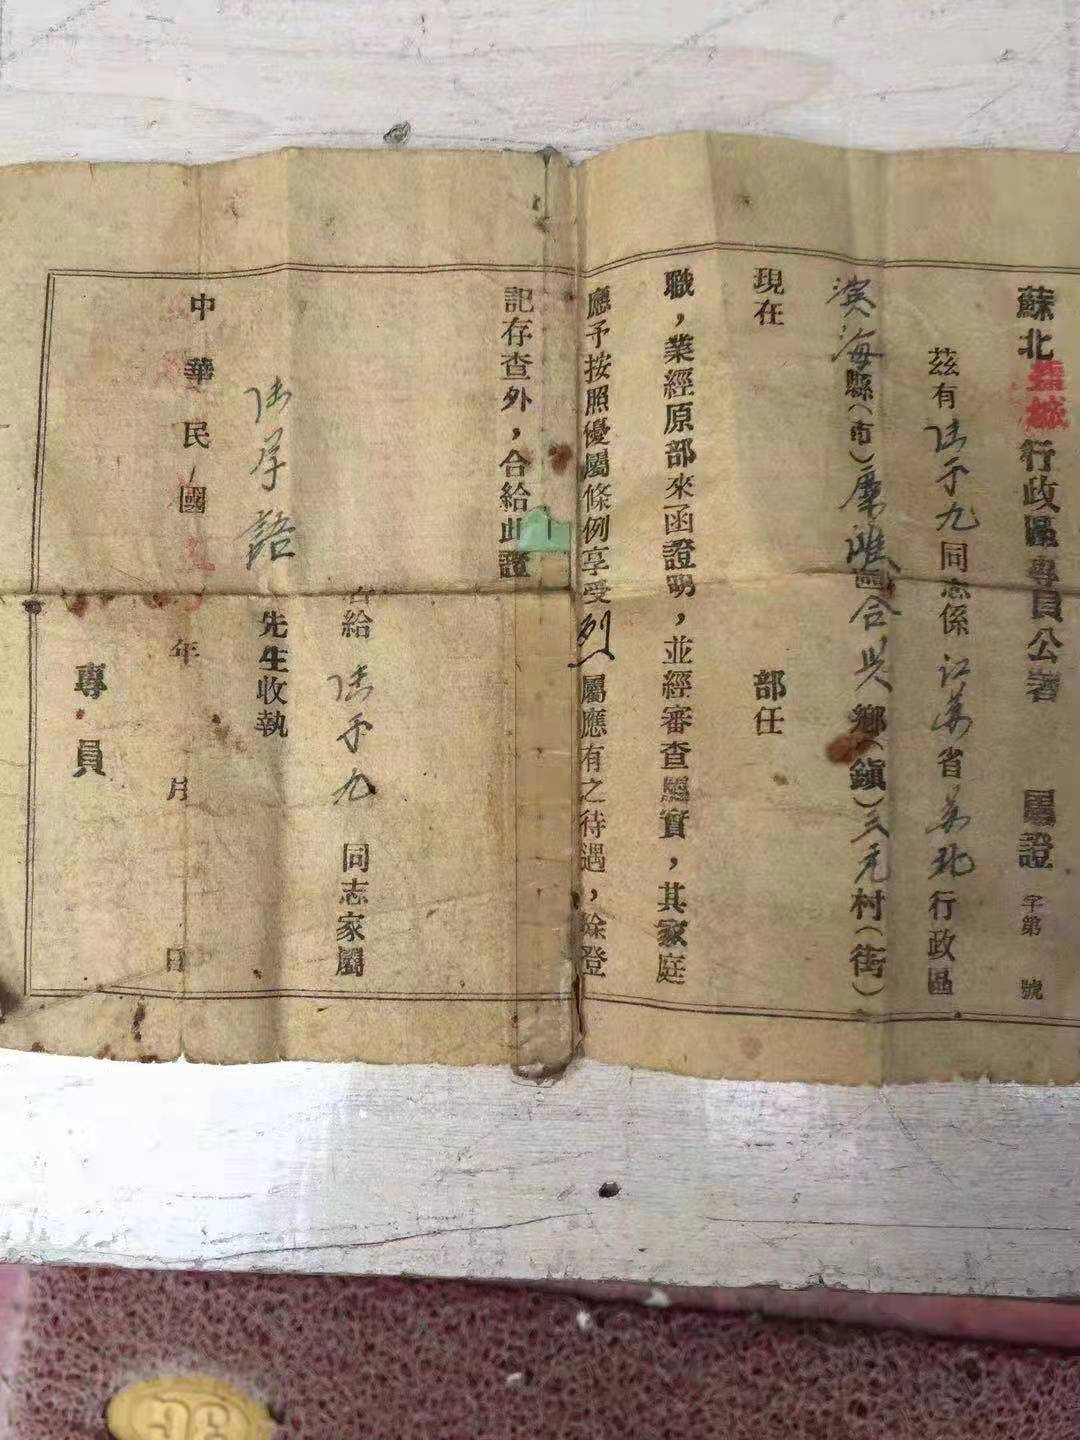 蘇北鹽城行政區專員公署 屬證 字第 號
茲有陆于九同志係江苏省苏北行政區
滨海縣(市) 合兴鄉(鎮)三元村(街)
現在 部任
職，業經原部來函證明，並經審查屬實，其家庭
應予按照優屬條例享受烈屬應有之待遇，除登
記存查外，合給此證
右給 陆于九 同志家屬
陆 先生收執
中華民國 年 月 日
專員